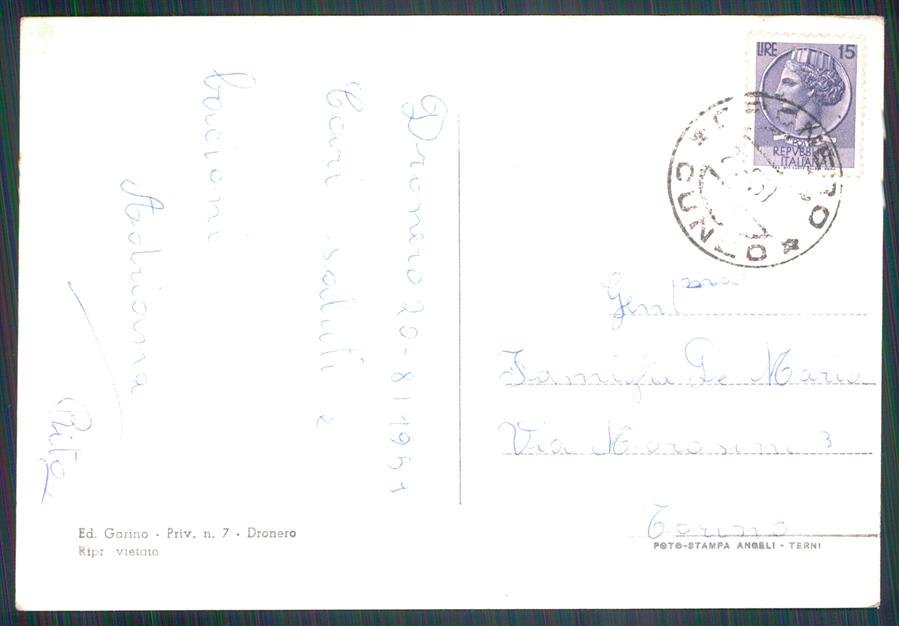 Dronero 20-8/1961
Cari saluti e
bacioni
Adriana
Rita
Ed. Garino - Priv. n. 7 - Dronero
Ripr. vietata
LIRE 15
REPVBBLICA
ITALIANA
Gent.ma
Famiglia De Mario
Via Morosini 3
Torino
FOTO-STAMPA ANGELI - TERNI